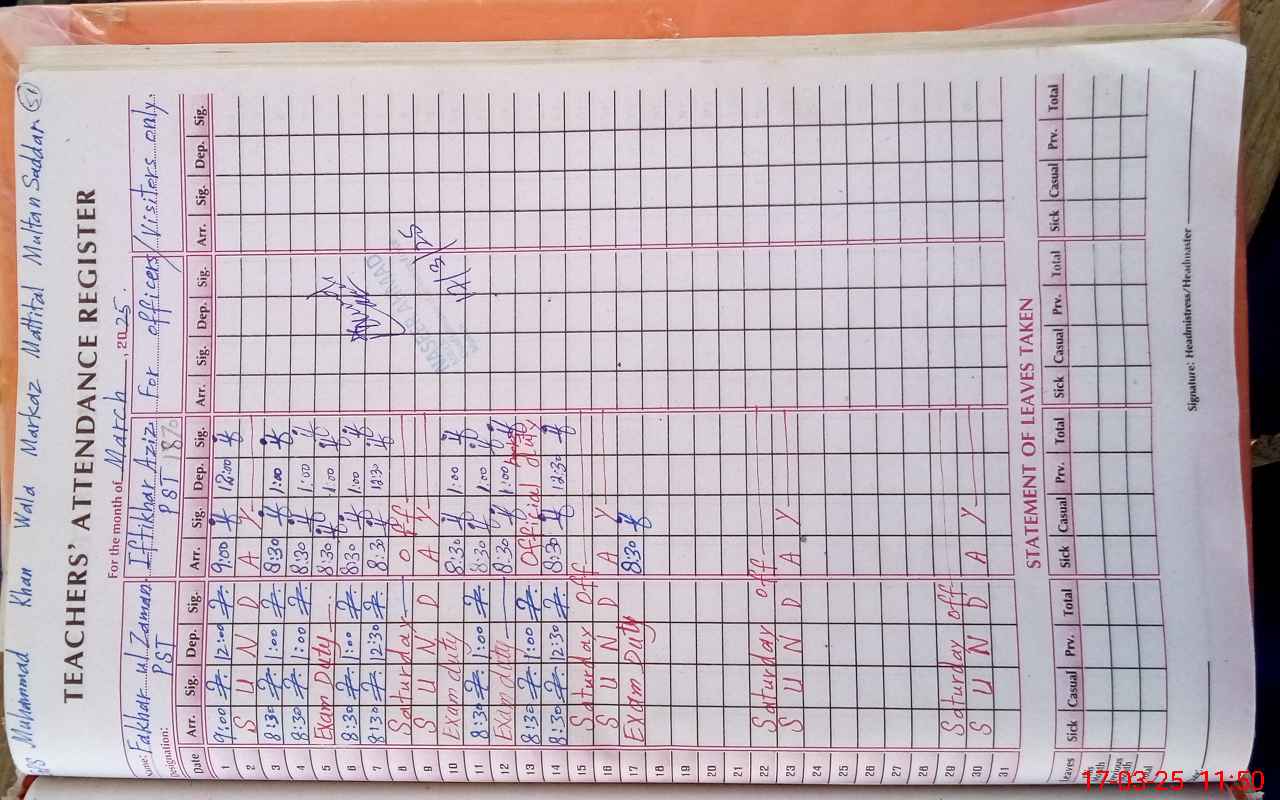 Muhammad Khan Wala Markaz Mattital Multan Saddar 51
TEACHERS' ATTENDANCE REGISTER
For the month of March, 2025.
Name: Fakhar ul Zaman. Iftikhar Aziz For officers/Visitors only.
Designation: PST PST
Date Arr. Sig. Dep. Sig. Arr. Sig. Dep. Sig. Arr. Sig. Dep. Sig. Arr. Sig. Dep. Sig.
1 9:00 12:00 9:00 12:00
2 S U N D A Y
3 8:30 1:00 8:30 1:00
4 8:30 1:00 8:30 1:00
5 Exam Duty 8:30 1:00
6 8:30 1:00 8:30 1:00
7 8:30 12:30 8:30 12:30
8 Saturday off
9 S U N D A Y
10 Exam duty 8:30 1:00
11 8:30 1:00 8:30 1:00
12 Exam duty 8:30 1:00
13 8:30 1:00 Official duty
14 8:30 12:30 8:30 12:30
15 Saturday off
16 S U N D A Y
17 Exam Duty 8:30
18
19
20
21
22 Saturday off
23 S U N D A Y
24
25
26
27
28
29 Saturday off
30 S U N D A Y
31
12/3/25
AHMAD
STATEMENT OF LEAVES TAKEN
Leaves Sick Casual Prv. Total Sick Casual Prv. Total Sick Casual Prv. Total Sick Casual Prv. Total
Signature: Headmistress/Headmaster
17-03-25 11:50